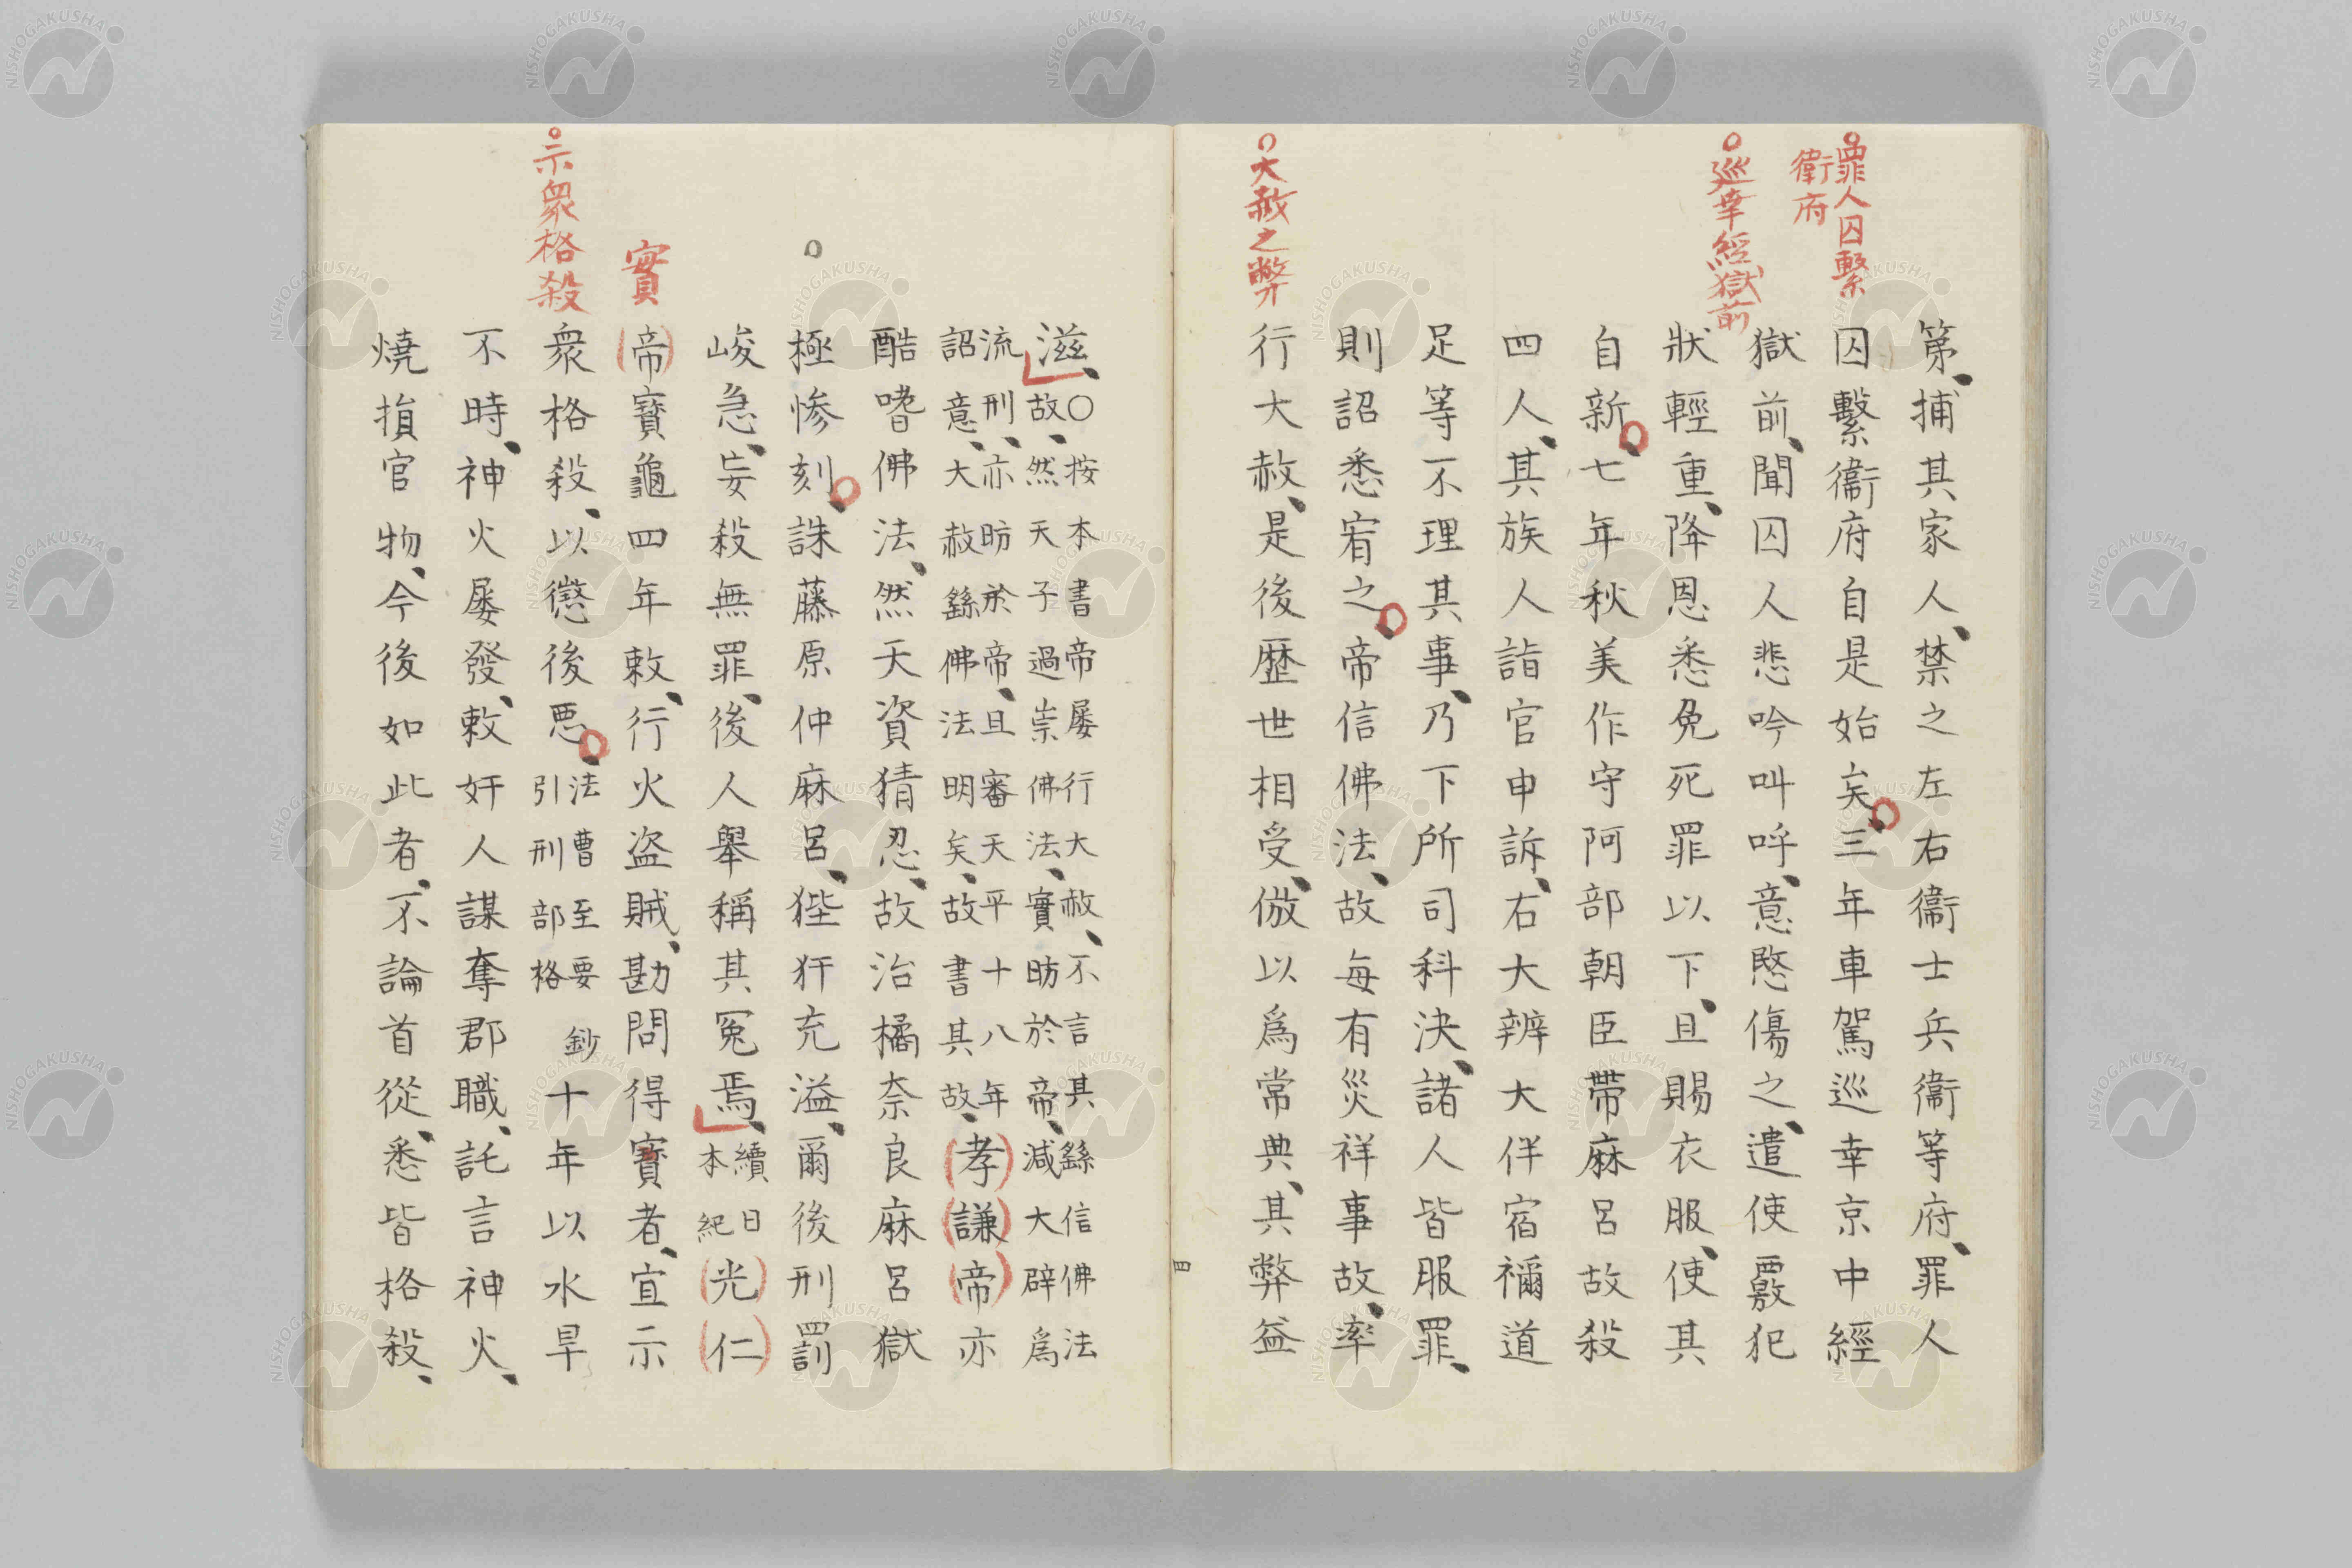 罪人囚繫
衛府
巡幸經獄前
大赦之弊
第、捕其家人、禁之左右衞士兵衞等府、罪人
囚繫衞府自是始矣、三年車駕巡幸京中經
獄前、聞囚人悲吟叫呼、意愍傷之、遣使覈犯
狀輕重、降恩悉免死罪以下、且賜衣服、使其
自新、七年秋美作守阿部朝臣帶麻呂故殺
四人、其族人詣官申訴、右大辨大伴宿禰道
足等不理其事、乃下所司科決、諸人皆服罪、
則詔悉宥之、帝信佛法、故每有災祥事故、率
行大赦、是後歷世相受、倣以爲常典、其弊益
四
示衆格殺
實
滋、〇按本書帝屡行大赦、不言其繇信佛法
故、然天子過崇佛法、實昉於帝、減大辟爲
流刑、亦昉於帝、且審天平十八年
詔意、大赦繇佛法明矣、故書其故、
(孝)(謙)(帝)亦
酷嗜佛法、然天資猜忍、故治橘奈良麻呂獄
極惨刻、誅藤原仲麻呂、狴犴充溢、爾後刑罰
峻急、妄殺無罪、後人舉稱其冤焉、續日
本紀
(光)(仁)
(帝)寳龜四年敕、行火盗賊、勘問得寳者、宣示
衆格殺、以懲後惡、法曹至要鈔
引刑部格
十年以水旱
不時、神火屡發、敕奸人謀奪郡職、託言神火、
燒損官物、今後如此者、不論首從、悉皆格殺、